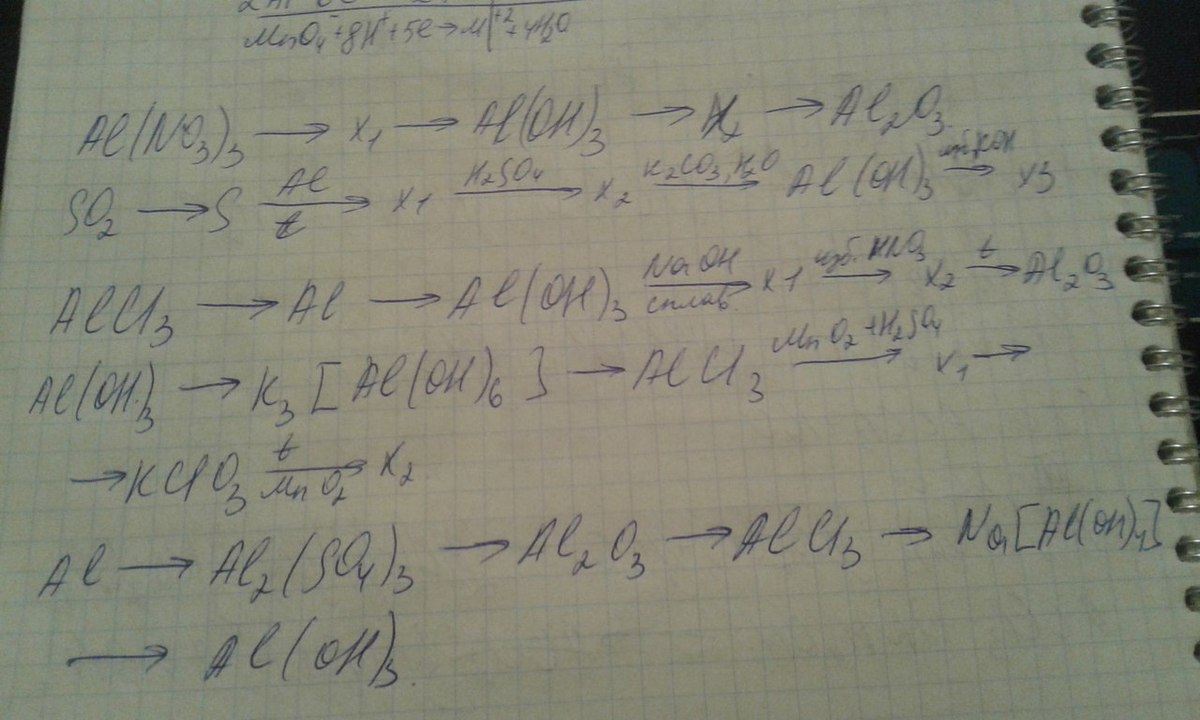 MnO₄⁻ + 8H⁺ + 5e → M⁺² + 4H₂O
Al(NO₃)₃ → X₁ → Al(OH)₃ → X₂ → Al₂O₃
SO₂ → S —Al/t→ X₁ —H₂SO₄→ X₂ —K₂CO₃, H₂O→ Al(OH)₃ —изб. KOH→ X₃
AlCl₃ → Al → Al(OH)₃ —NaOH/сплав.→ X₁ —изб. HNO₃→ X₂ —t→ Al₂O₃
Al(OH)₃ → K₃[Al(OH)₆] → AlCl₃ —MnO₂ + H₂SO₄→ X₁ →
→ KClO₃ —t/MnO₂→ X₂
Al → Al₂(SO₄)₃ → Al₂O₃ → AlCl₃ → Na[Al(OH)₄]
→ Al(OH)₃.